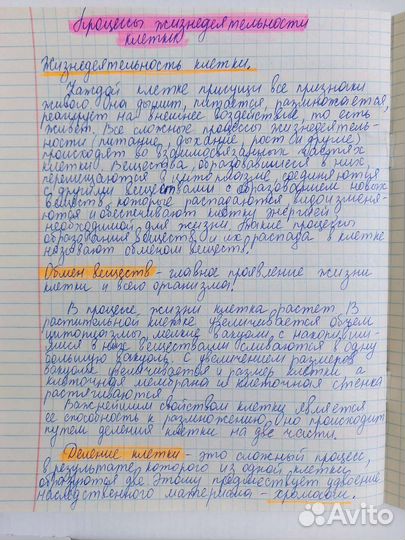 Процессы жизнедеятельности
клетки
Жизнедеятельность клетки.
Каждой клетке присущи все признаки
живого она дышит, питается, размножается,
реагирует на внешнее воздействие, то есть
живет. Все сложные процессы жизнедеятель-
ности (питание, дыхание, рост и другие)
происходят во взаимосвязанных частях
клетки. Вещества, образовавшиеся в них,
перемещаются в цитоплазме, соединяются
с другими веществами с образованием новых
веществ, которые распадаются, видоизменя-
ются и обеспечивают клетку энергией
необходимой для жизни. Такие процессы
образования веществ и их распада в клетке
называют обменом веществ.
Обмен веществ - главное проявление жизни
клетки и всего организма.
В процессе жизни клетка растет. В
растительной клетке увеличивается объем
цитоплазмы, мелкие вакуоли с накопивши-
мися в них веществами сливаются в одну
большую вакуоль. С увеличением размеров
вакуоли увеличивается и размер клетки, а
клеточная мембрана и клеточная стенка
растягиваются.
Важнейшим свойством клетки является
ее способность к размножению. Оно происходит
путем деления клетки на две части.
Деление клетки - это сложный процесс,
в результате которого из одной клетки
образуются две. Этому предшествует удвоение
наследственного материала - хромосом.
Avito